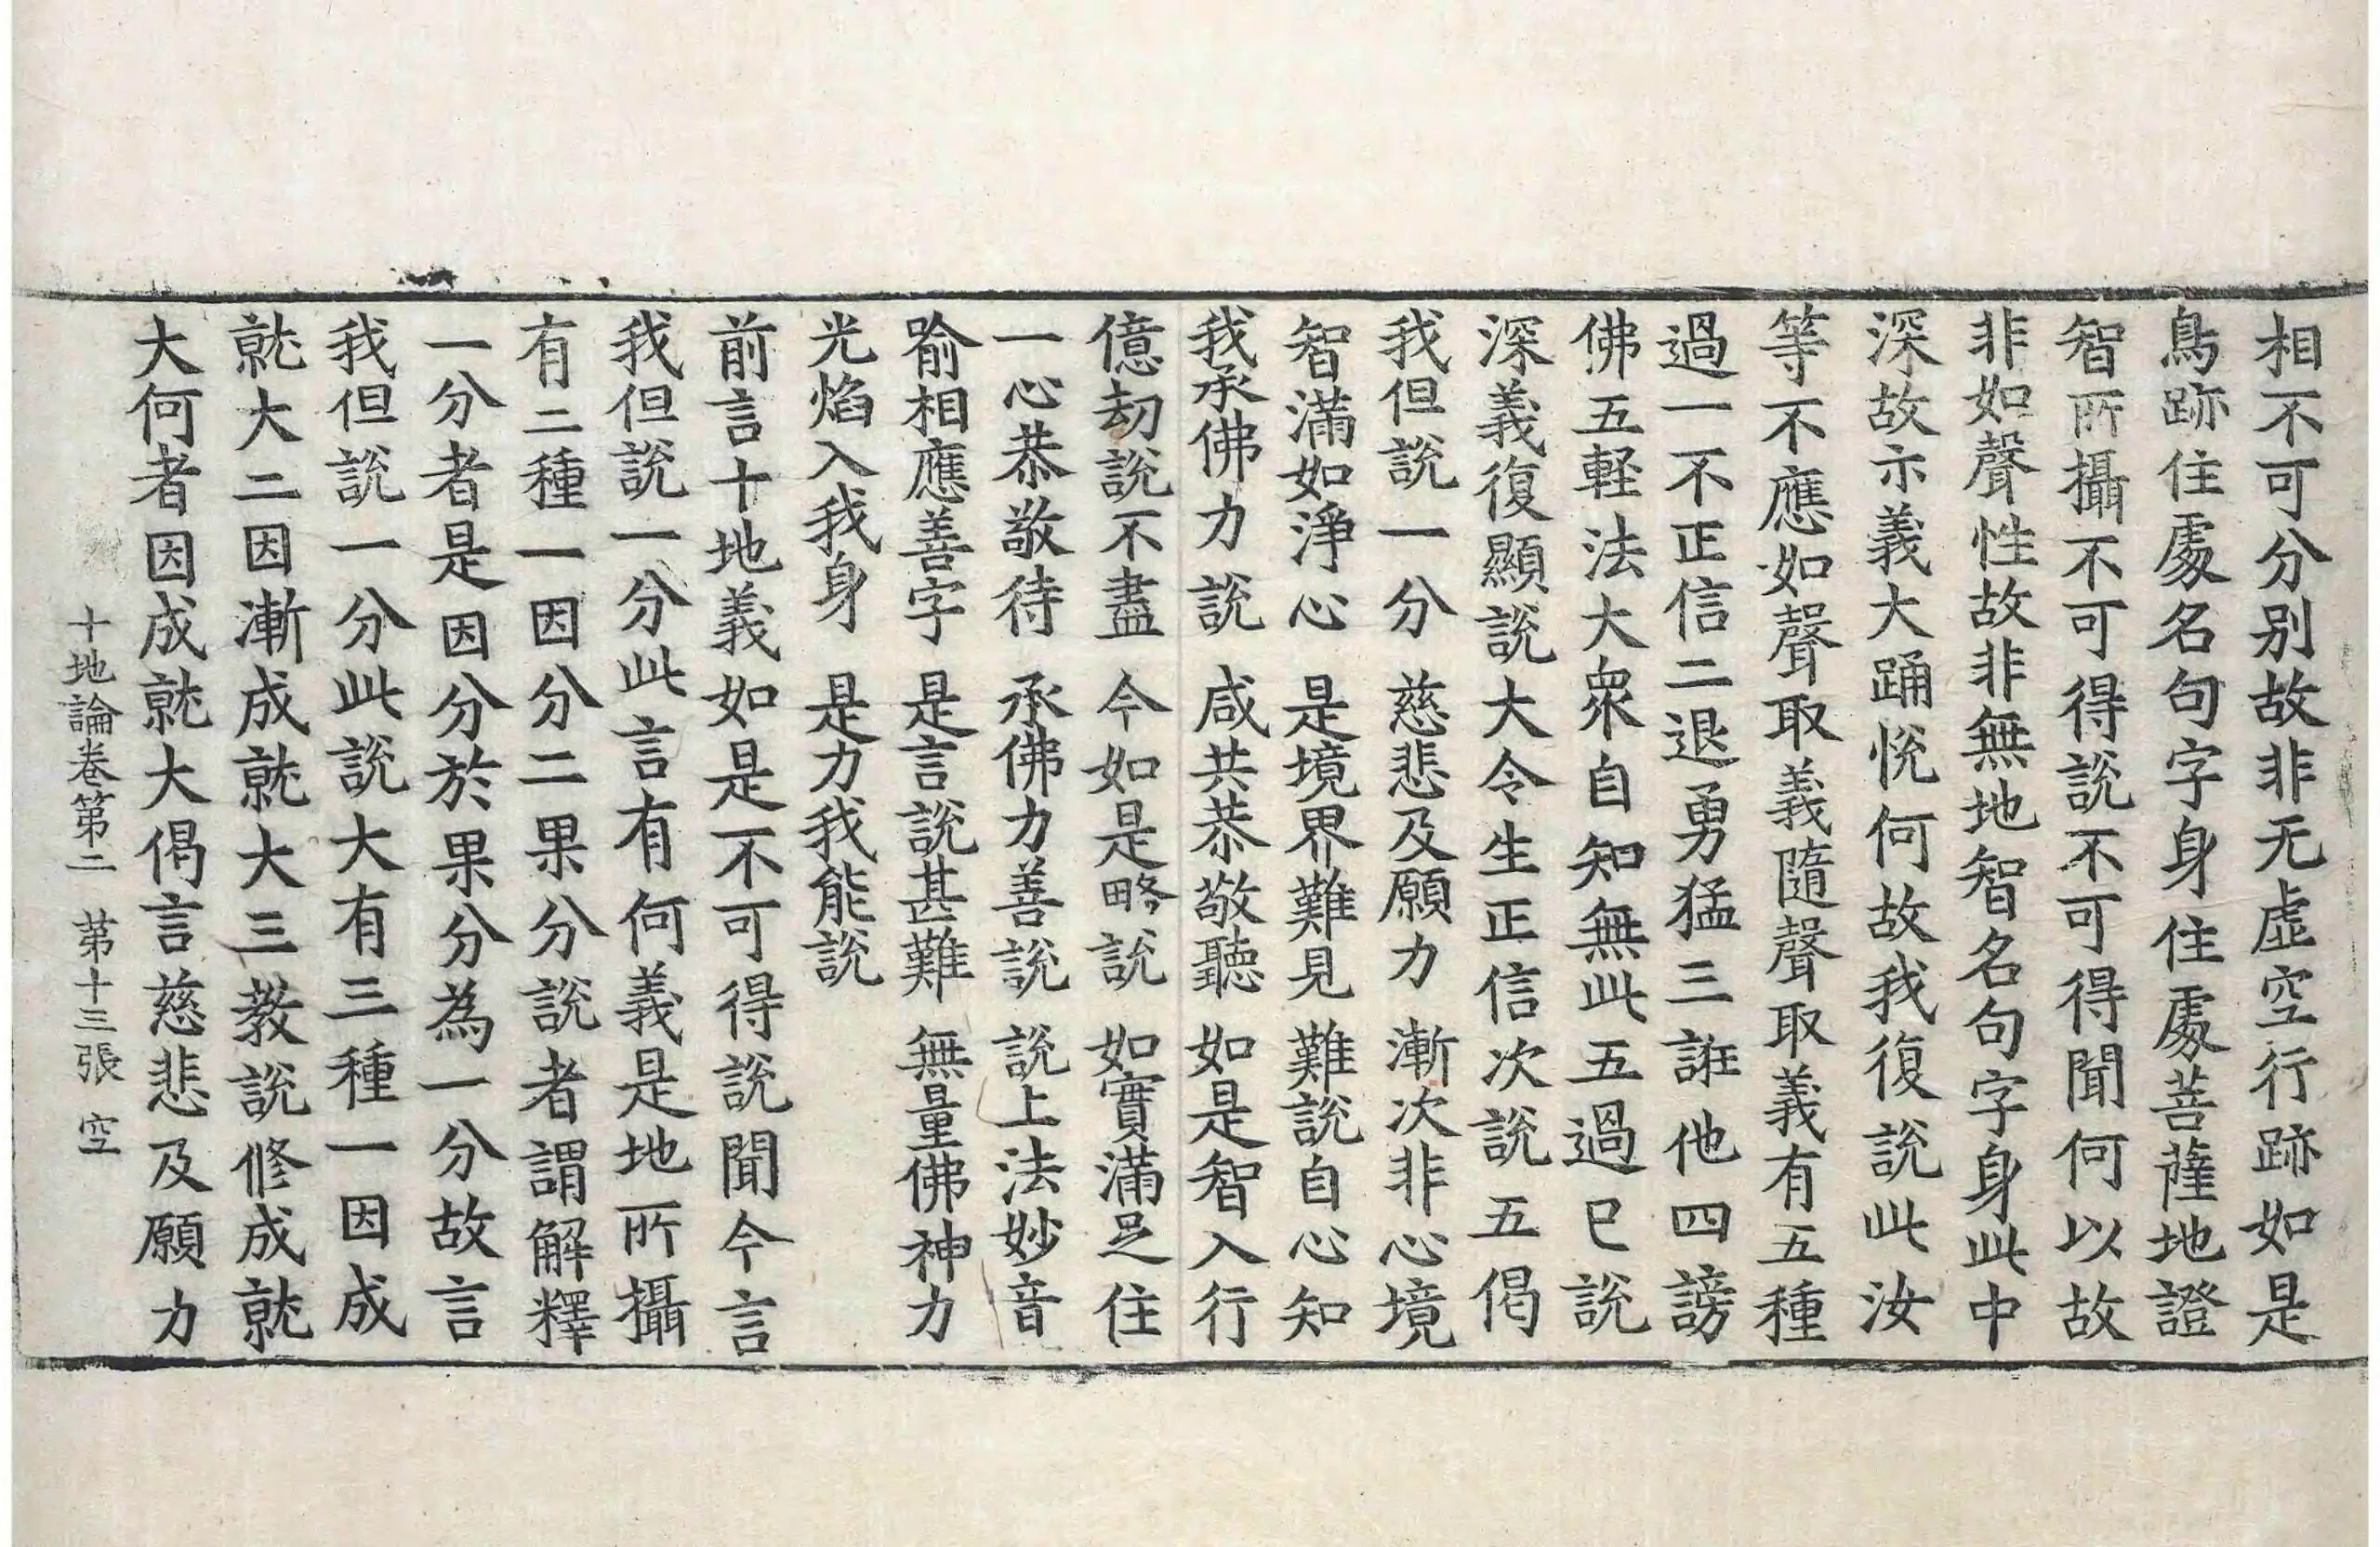 相不可分别故非无虛空行跡如是
鳥跡住處名句字身住處菩薩地證
智所攝不可得說不可得聞何以故
非如聲性故非無地智名句字身此中
深故示義大踊恱何故我復說此汝
等不應如聲取義隨聲取義有五種
過一不正信二退勇猛三誑他四謗
佛五軽法大衆自知無此五過已說
深義復顯說大令生正信次說五偈
我但說一分　慈悲及願力　漸次非心境
智滿如淨心　是境界難見　難說自心知
我承佛力說　咸共恭敬聽　如是智入行
億劫說不盡　今如是略說　如實滿足住
一心恭敬待　承佛力善說　說上法妙音
喻相應善字　是言說甚難　無量佛神力
光焰入我身　是力我能說
前言十地義如是不可得說聞今言
我但說一分此言有何義是地所攝
有二種一因分二果分說者謂解釋
一分者是因分於果分為一分故言
我但說一分此說大有三種一因成
就大二因漸成就大三教說修成就
大何者因成就大偈言慈悲及願力
十地論卷第二　第十三張　空